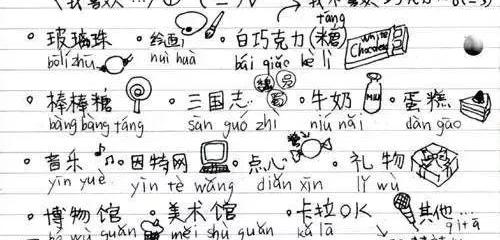 (我喜欢…)① (二) ↗我不喜欢
táng
• 玻璃珠 • 绘画 • 白巧克力(糖) White Chocolate
bōlí zhū nuì huà bái qiǎo kè lì
• 棒棒糖 • 三国志 魏 吴 蜀 • 牛奶 MILK • 蛋糕
bàng bàng táng sān guó zhì niú nǎi dàn gāo
• 音乐 • 因特网 • 点心 • 礼物
yīn yuè yīn tè wǎng diǎn xīn lǐ wù
• 博物馆 • 美术馆 • 卡拉OK 其他…
bó wù guǎn měi shù guǎn kǎ lā qí tā